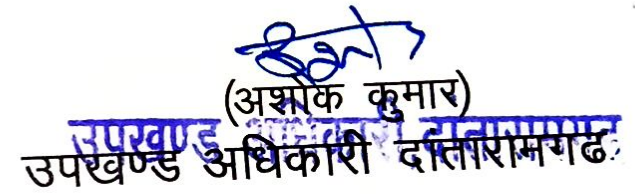 (अशोक कुमार)
उपखण्ड अधिकारी दांतारामगढ
उपखण्ड अधिकारी दांतारामगढ़